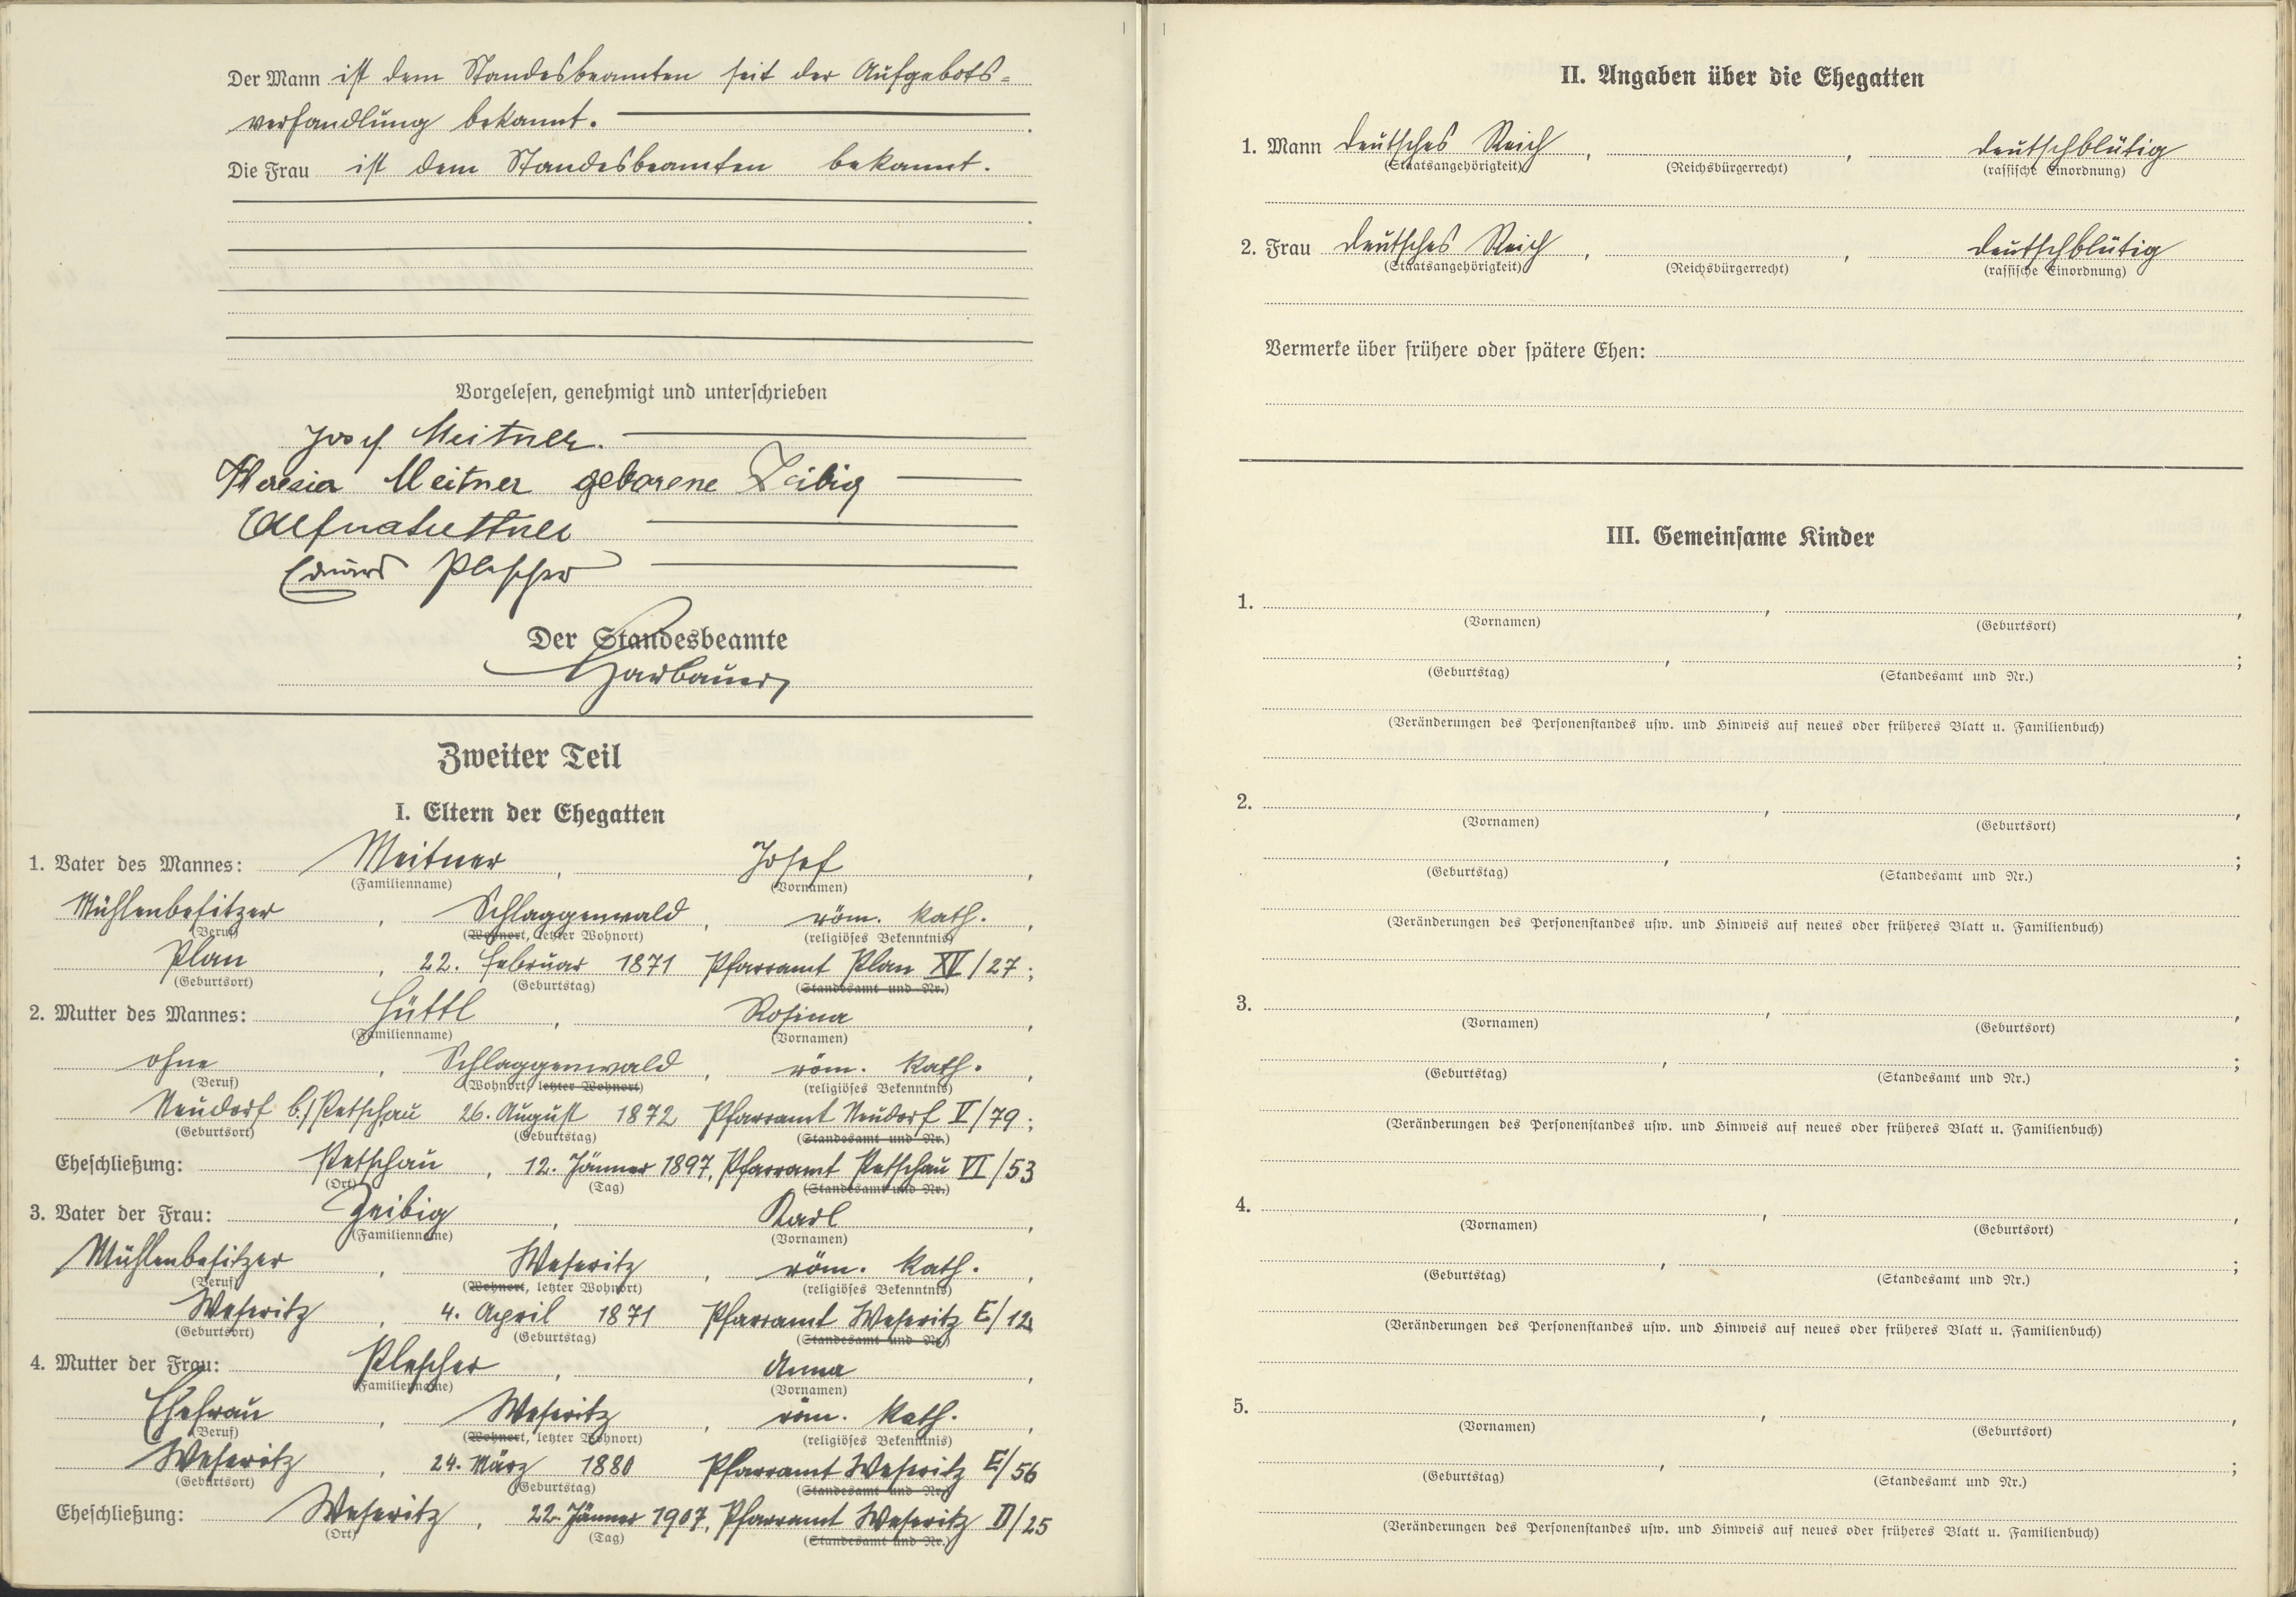 Der Mann ist dem Standesbeamten seit der Aufgebots-
verhandlung bekannt.
Die Frau ist dem Standesbeamten bekannt.
Vorgelesen, genehmigt und unterschrieben
Josef Meitner.
Theresia Meitner geborene Zeibig
Eduard Plescher
Der Standesbeamte
Zweiter Teil
I. Eltern der Ehegatten
1. Vater des Mannes: Meitner, Josef,
(Familienname) (Vornamen)
Mühlenbesitzer, Schlaggenwald, röm. kath.,
(Beruf) (Wohnort, letzter Wohnort) (religiöses Bekenntnis)
Plan, 22. Februar 1871 Pfarramt Plan XV/27;
(Geburtsort) (Geburtstag) (Standesamt und Nr.)
2. Mutter des Mannes: Hüttl, Rosina,
(Familienname) (Vornamen)
ohne, Schlaggenwald, röm. kath.,
(Beruf) (Wohnort, letzter Wohnort) (religiöses Bekenntnis)
Neudorf b./Petschau 26. August 1872 Pfarramt Neudorf V/79;
(Geburtsort) (Geburtstag) (Standesamt und Nr.)
Eheschließung: Petschau, 12. Jänner 1897, Pfarramt Petschau VI/53
(Ort) (Tag) (Standesamt und Nr.)
3. Vater der Frau: Zeibig, Karl,
(Familienname) (Vornamen)
Mühlenbesitzer, Weseritz, röm. kath.,
(Beruf) (Wohnort, letzter Wohnort) (religiöses Bekenntnis)
Weseritz, 4. April 1871 Pfarramt Weseritz E/12
(Geburtsort) (Geburtstag) (Standesamt und Nr.)
4. Mutter der Frau: Plescher, Anna,
(Familienname) (Vornamen)
Ehefrau, Weseritz, röm. kath.,
(Beruf) (Wohnort, letzter Wohnort) (religiöses Bekenntnis)
Weseritz, 24. März 1880 Pfarramt Weseritz E/56
(Geburtsort) (Geburtstag) (Standesamt und Nr.)
Eheschließung: Weseritz, 22. Jänner 1907, Pfarramt Weseritz D/25
(Ort) (Tag) (Standesamt und Nr.)
II. Angaben über die Ehegatten
1. Mann deutsches Reich, , deutschblütig
(Staatsangehörigkeit) (Reichsbürgerrecht) (rassische Einordnung)
2. Frau deutsches Reich, , deutschblütig
(Staatsangehörigkeit) (Reichsbürgerrecht) (rassische Einordnung)
Vermerke über frühere oder spätere Ehen:
III. Gemeinsame Kinder
1. , ,
(Vornamen) (Geburtsort)
, ;
(Geburtstag) (Standesamt und Nr.)
(Veränderungen des Personenstandes usw. und Hinweis auf neues oder früheres Blatt u. Familienbuch)
2. , ,
(Vornamen) (Geburtsort)
, ;
(Geburtstag) (Standesamt und Nr.)
(Veränderungen des Personenstandes usw. und Hinweis auf neues oder früheres Blatt u. Familienbuch)
3. , ,
(Vornamen) (Geburtsort)
, ;
(Geburtstag) (Standesamt und Nr.)
(Veränderungen des Personenstandes usw. und Hinweis auf neues oder früheres Blatt u. Familienbuch)
4. , ,
(Vornamen) (Geburtsort)
, ;
(Geburtstag) (Standesamt und Nr.)
(Veränderungen des Personenstandes usw. und Hinweis auf neues oder früheres Blatt u. Familienbuch)
5. , ,
(Vornamen) (Geburtsort)
, ;
(Geburtstag) (Standesamt und Nr.)
(Veränderungen des Personenstandes usw. und Hinweis auf neues oder früheres Blatt u. Familienbuch)